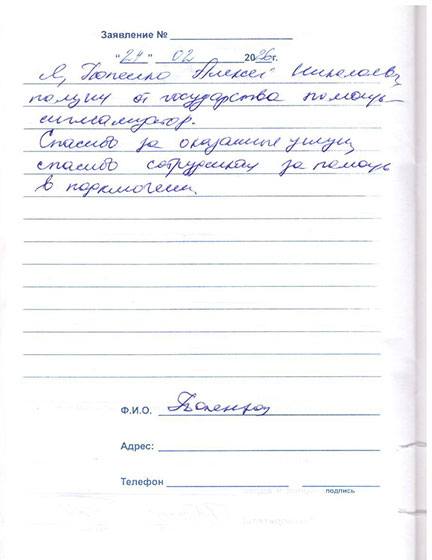 Заявление №
"24" 02 2026г.
Я, Алексей Николаевич
получил от государства помощь
сигнализатор.
Спасибо за оказанные услуги,
спасибо сотрудникам за помощь
в подключении.
Ф.И.О.
Адрес:
Телефон
подпись